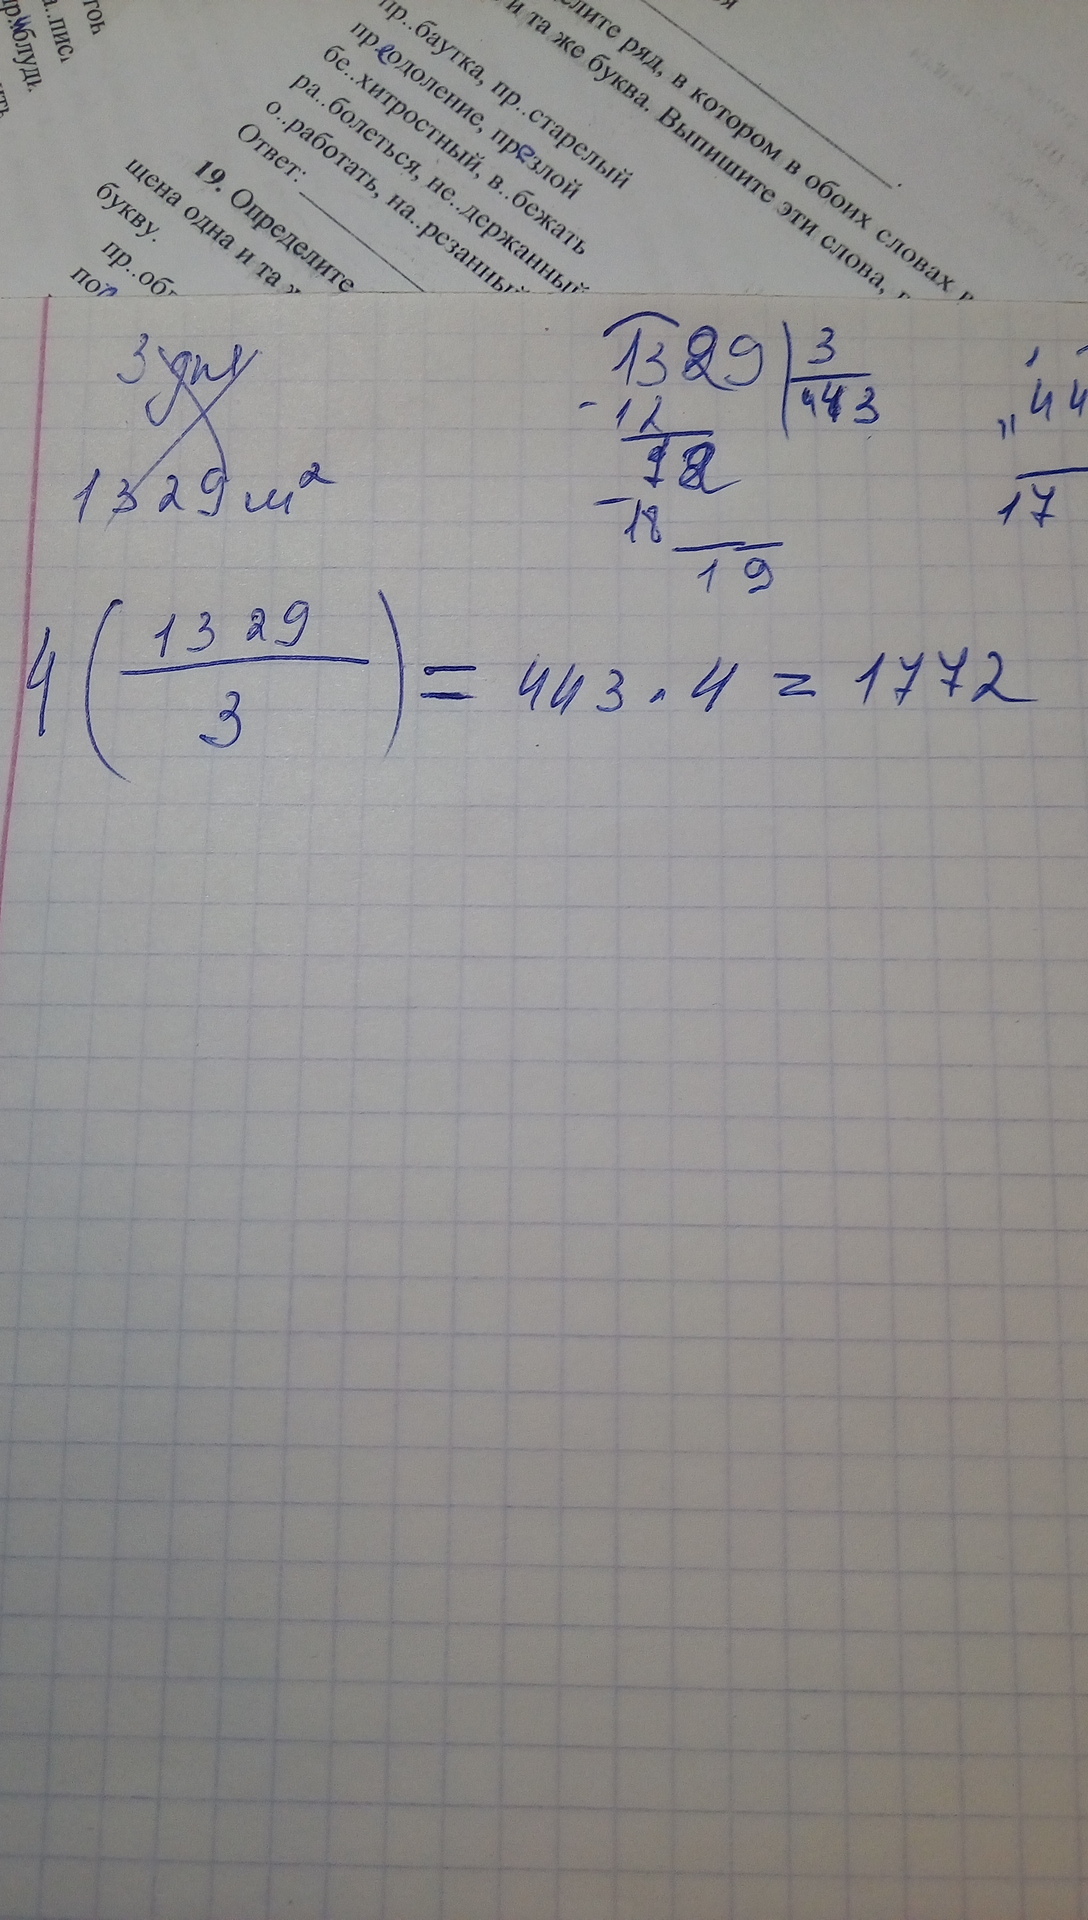 делите ряд, в котором в обоих словах
и та же буква. Выпишите эти слова,
пр..баутка, пр..старелый
преодоление, презлой
бе..хитростный, в..бежать
ра..болеться, не..держанный
о..работать, на..резанный
Ответ:
19. Определите
щена одна и та ж
букву.
пр..об
по
3 дня
1329 м²
1329 3
443
- 12
12
- 18
19
44
17
4 (1329/3) = 443 · 4 = 1772